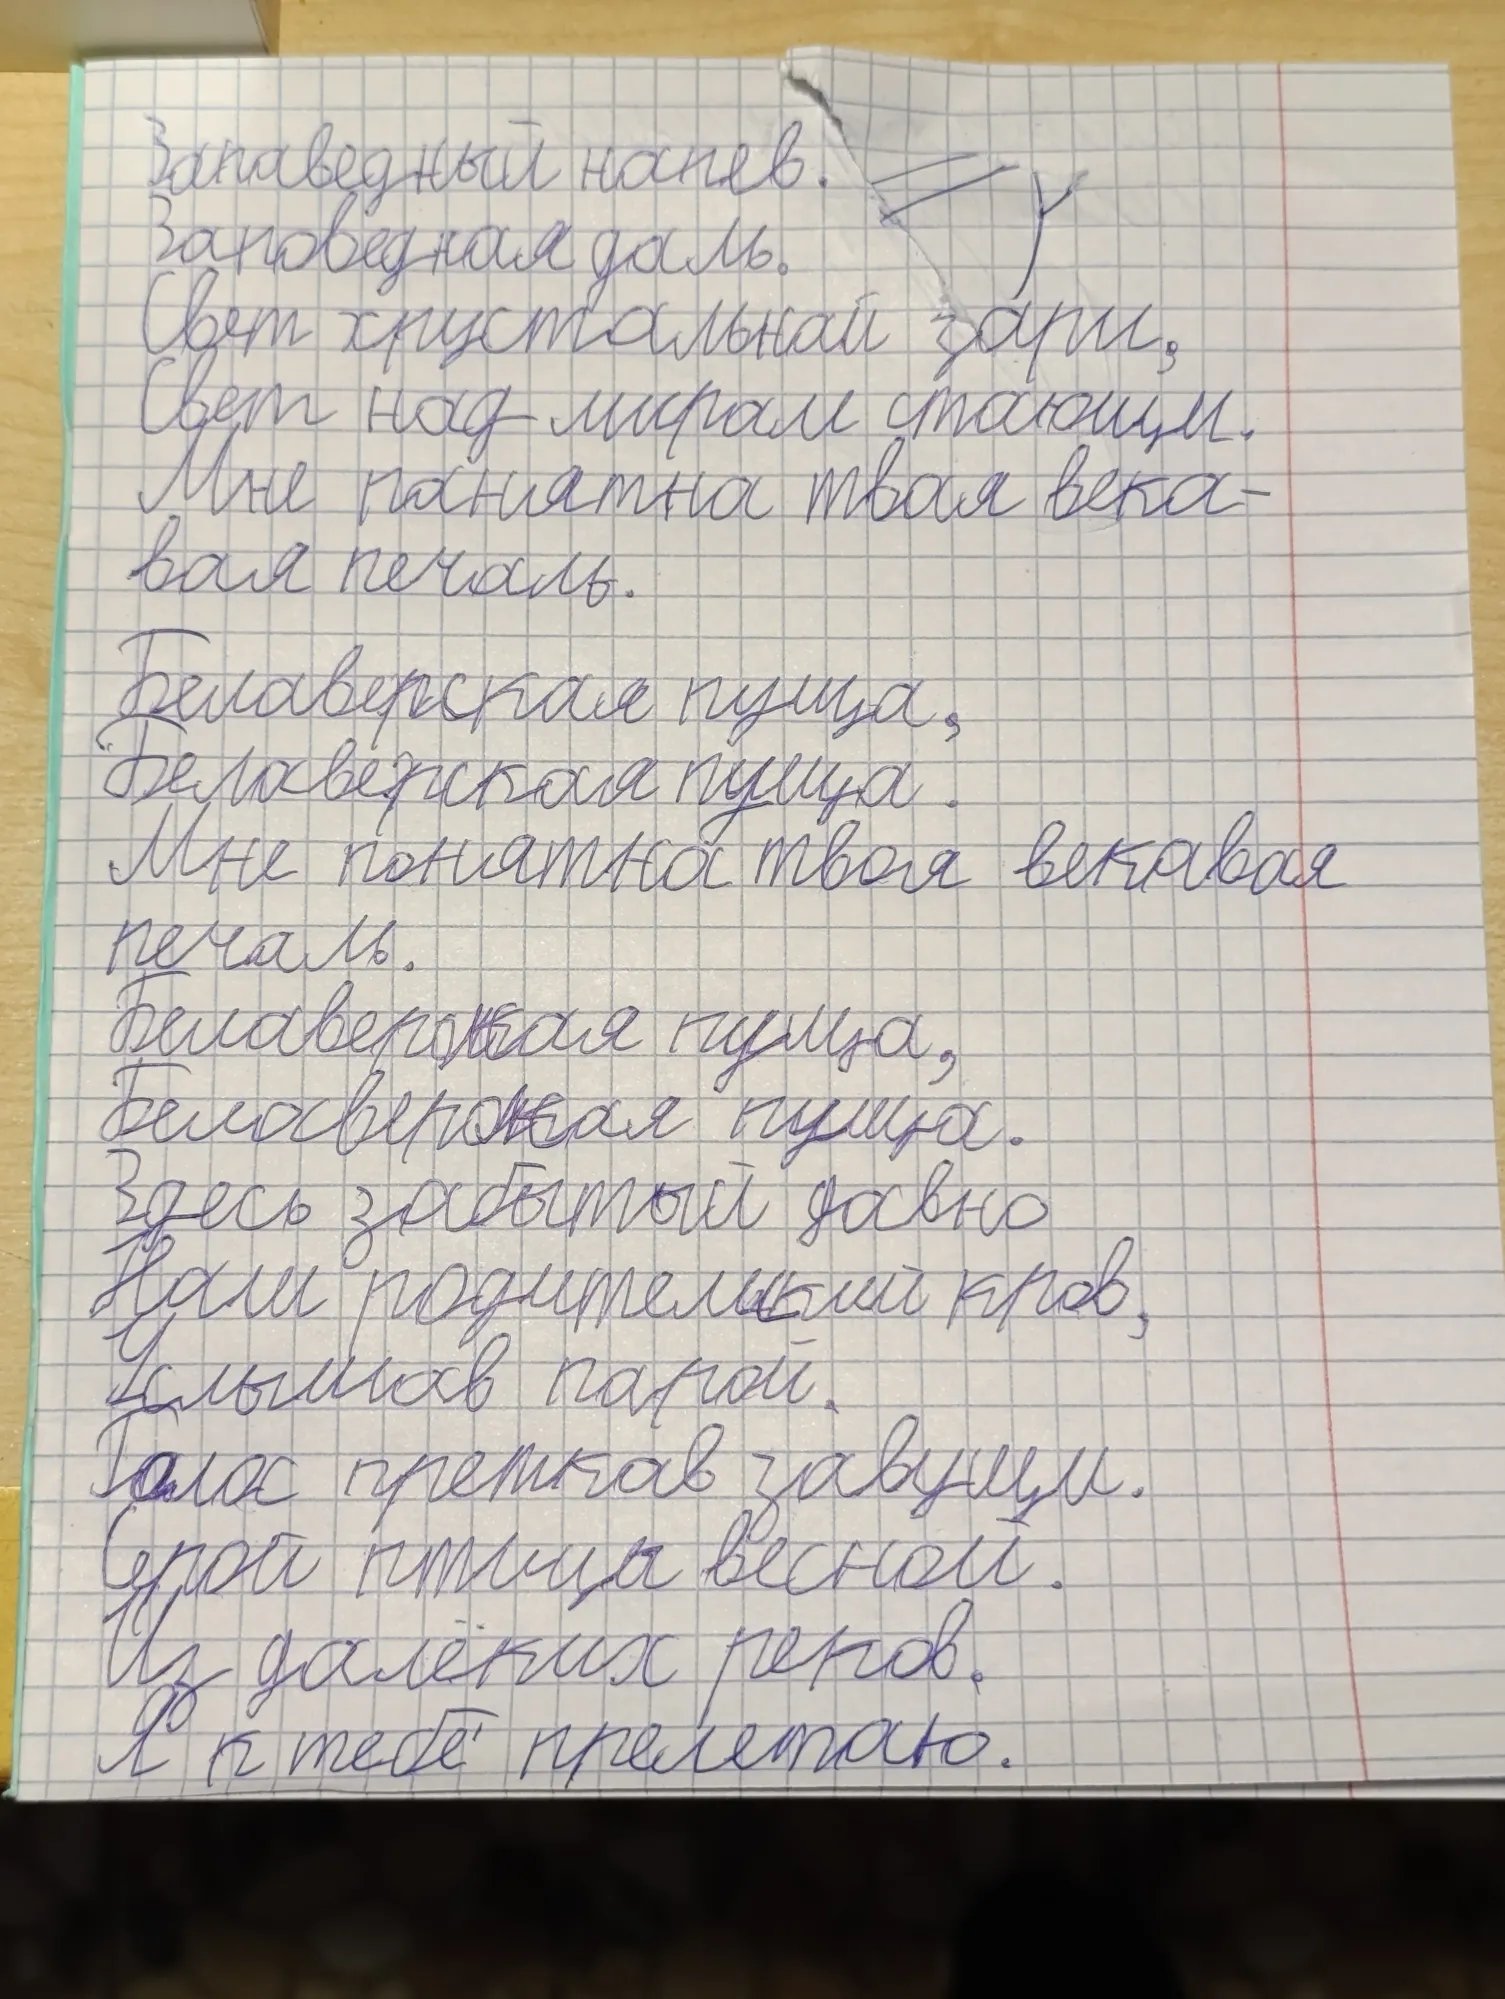 Запаведный напев.
Заповедная даль.
Свет хрустальнай зари,
Свет над мирам стающи.
Мне панятна твая века-
вая печаль.
Белаверская пуща,
Белаверская пуща.
Мне понятна твоя векавая
печаль.
Белавержкая пуща,
Белосвержкая пуща.
Здесь забытый давно
Наш родительский кров,
Услышав парой.
Голос преткав завущи.
Серой птица весной.
Из далёких реков.
Я к тебе прелетаю.